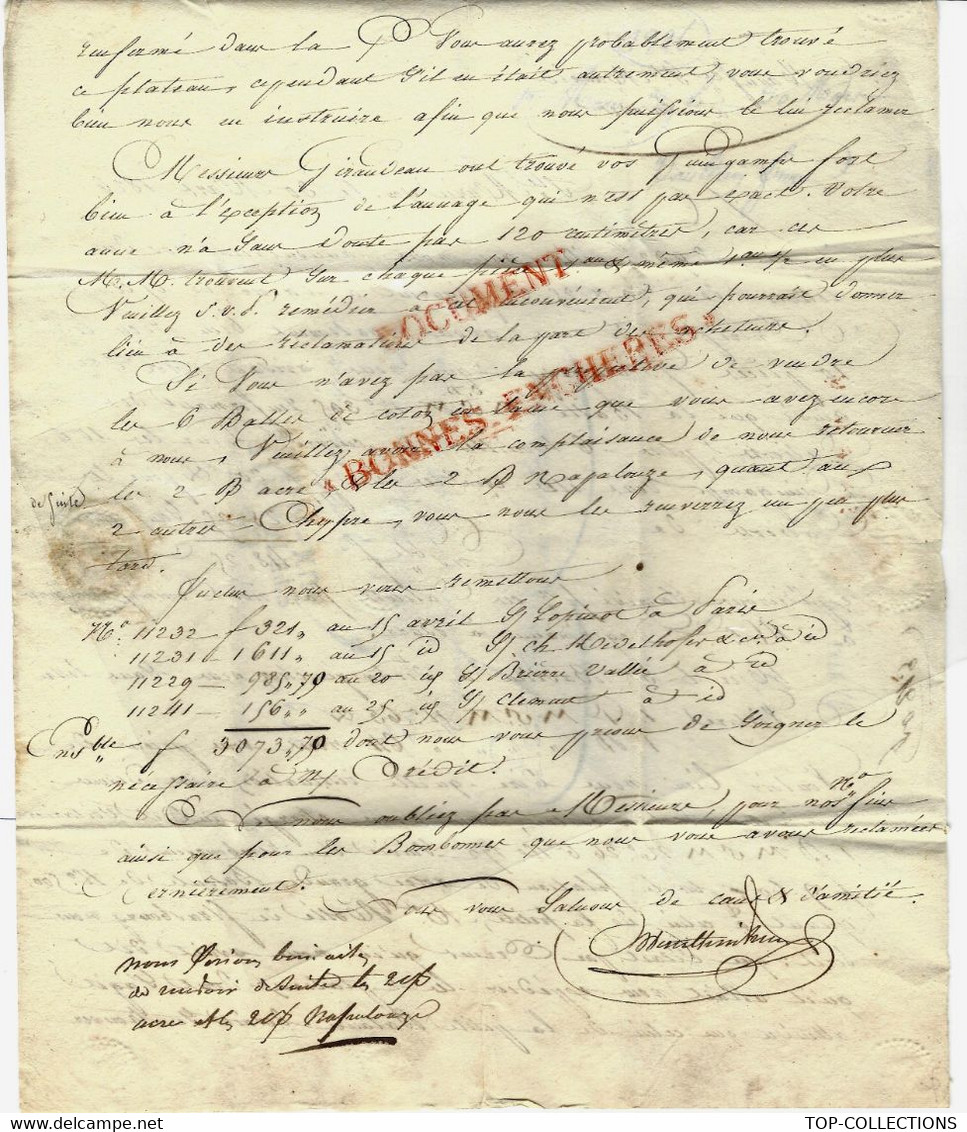 renfermé dans la Vous aurez probablement trouvé
ce plateau, cependant s'il en était autrement vous voudriez
bien nous en instruire afin que nous puissions le lui reclamer
Messieurs Giraudeau ont trouvé vos Guingamps fort
bien à l'exception de l'aunage qui n'est pas exact. Votre
aune n'a sans doute pas 120 centimètres, car ces
M.M. trouvent sur chaque pièce & même en plus
Veuillez s.v.p. remédier à cet inconvénient, qui pourrait donner
lieu à des réclamations de la part des acheteurs.
DOCUMENT
BONNES ENCHERES
Si Vous n'avez pas la de vendre
les 6 Balles de coton en que vous avez encore
à nous, Veuillez avoir la complaisance de nous retourner
de suite
les 2 B acre & les 2 B Napalouze, quant aux
2 autres Chypre, vous nous les renverrez un peu plus
tard.
Inclus nous vous remettons
No. 11232 f 321 " au 15 avril S/ à Paris
11231 - 1611 " au 15 id S/ ch & Cie à id
11229 - 985 " 70 au 20 id S/ Brierre Vallée à id
11241 - 156 " " au 25 id S/ Clement à id
Ensble f 3073 " 70 dont nous vous prions de soigner le
nécessaire à n/ Crédit.
N'oubliez pas Messieurs, pour nos
ainsi que pour les Bombonnes que nous vous avons reclamées
dernièrement.
Nous vous Saluons de cœur & d'amitié.
nous Prions
de suite les 2
acre et les 2 Napalouze
TOP-COLLECTIONS